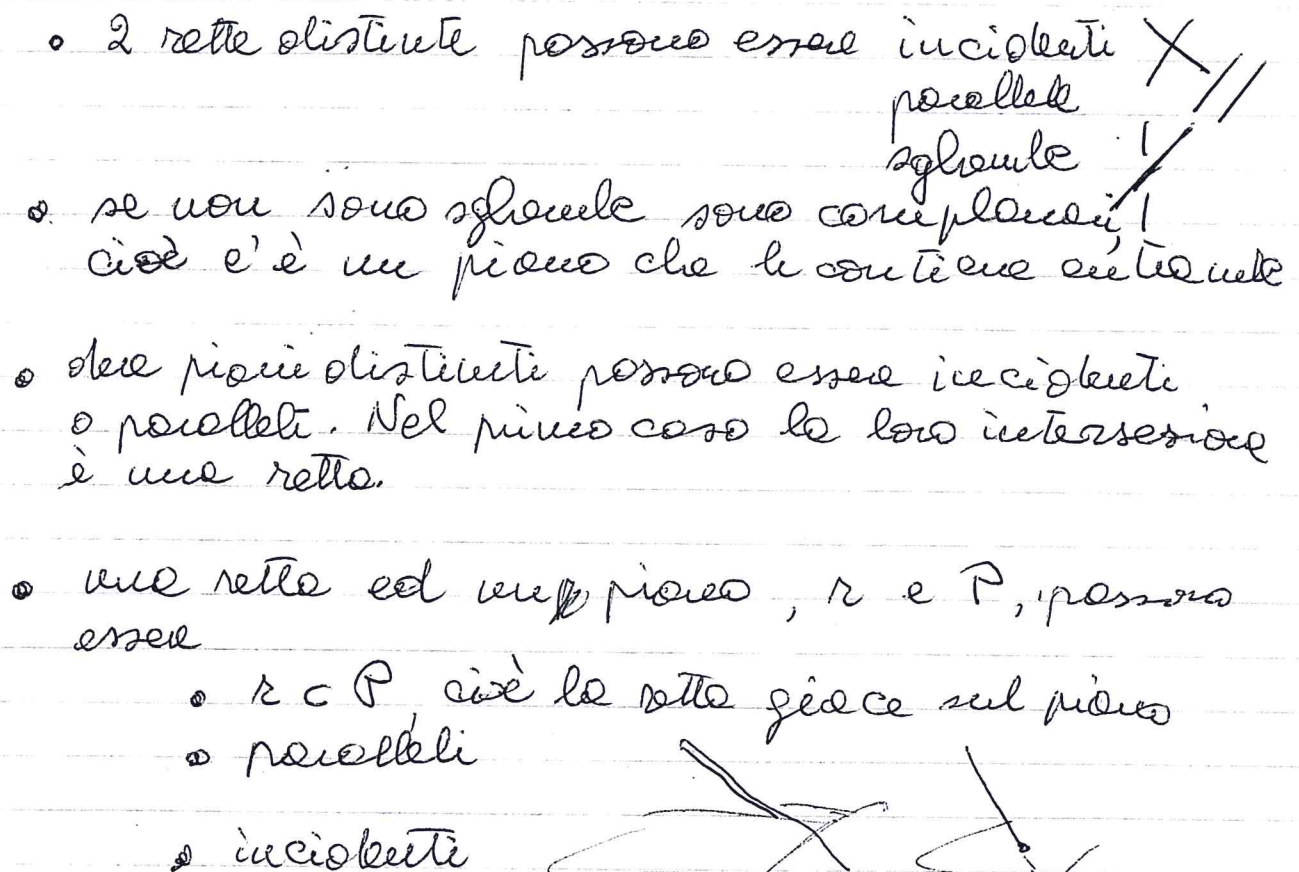 • 2 rette distinte possono essere incidenti
parallele
sghembe
• se non sono sghembe sono complanari,
cioè c'è un piano che le contiene entrambe
• due piani distinti possono essere incidenti
o paralleli. Nel primo caso la loro intersezione
è una retta.
• una retta ed un piano, r e P, possono
essere
• r ⊂ P, cioè la retta giace sul piano
• paralleli
• incidenti